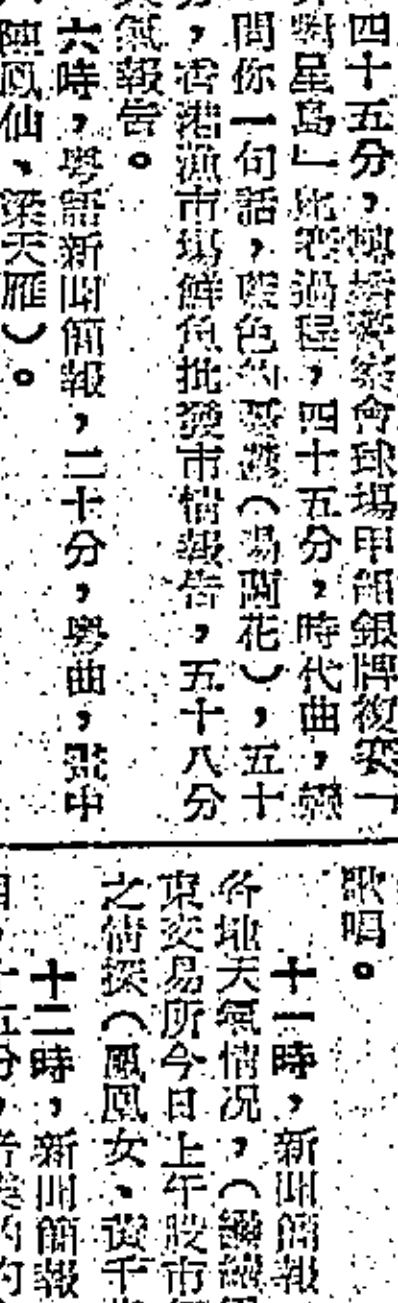 四十五分，轉播警察會球場甲組銀牌複賽「
對星島」比賽過程，四十五分，時代曲，
問你一句話，藍色的憂鬱（湯蘭花），五十
分，香港漁市場鮮魚批發市情報告，五十八分
天氣報告。
六時，粵語新聞簡報，二十分，粵曲，
陳鳳仙、梁天雁）。
歌唱。
十一時，新聞簡報
各地天氣情况，（繼續
東交易所今日上午股市
之情探（鳳凰女、黃千
十二時，新聞簡報
十五分，